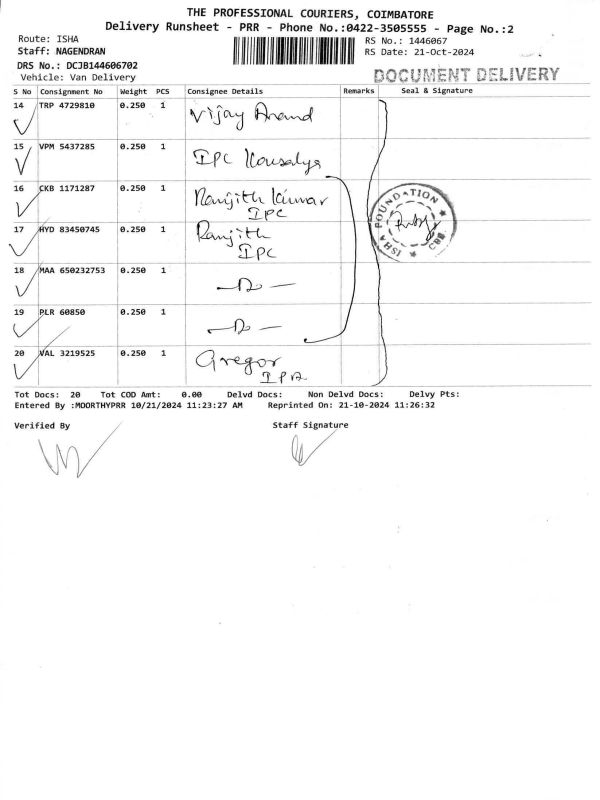 THE PROFESSIONAL COURIERS, COIMBATORE
Delivery Runsheet - PRR - Phone No.:0422-3505555 - Page No.:2
Route: ISHA
Staff: NAGENDRAN
DRS No.: DCJB144606702
Vehicle: Van Delivery
RS No.: 1446067
RS Date: 21-Oct-2024
DOCUMENT DELIVERY
S No Consignment No Weight PCS Consignee Details Remarks Seal & Signature
14 TRP 4729810 0.250 1 Vijay Anand
15 VPM 5437285 0.250 1 IPC Kousalya
16 CKB 1171287 0.250 1 Ranjith Kumar
IPC
17 HYD 83450745 0.250 1 Ranjith
IPC
18 MAA 650232753 0.250 1 -Do-
19 PLR 60850 0.250 1 -Do-
20 VAL 3219525 0.250 1 Gregor
ISHA FOUNDATION CBE
Tot Docs: 20 Tot COD Amt: 0.00 Delvd Docs: Non Delvd Docs: Delvy Pts:
Entered By :MOORTHYPRR 10/21/2024 11:23:27 AM Reprinted On: 21-10-2024 11:26:32
Verified By Staff Signature